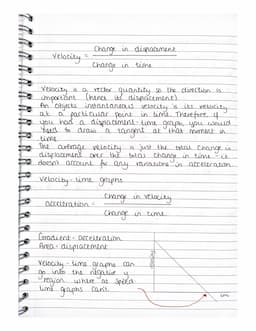 Velocity = Change in displacement
Change in time
Velocity is a vector quantity so the direction is
important (hence its displacement)
An objects instantaneous velocity is its velocity
at a particular point in time. Therefore, if
you had a displacement-time graph, you would
need to draw a tangent at that moment in
time
The average velocity is just the total change in
displacement over the total change in time - it
doesn't account for any variations in acceleration
Velocity-time graphs
acceleration = Change in velocity
Change in time
Gradient = acceleration
Area = displacement
Velocity-time graphs can
go into the negative y
region where as speed
time graphs can't.
time